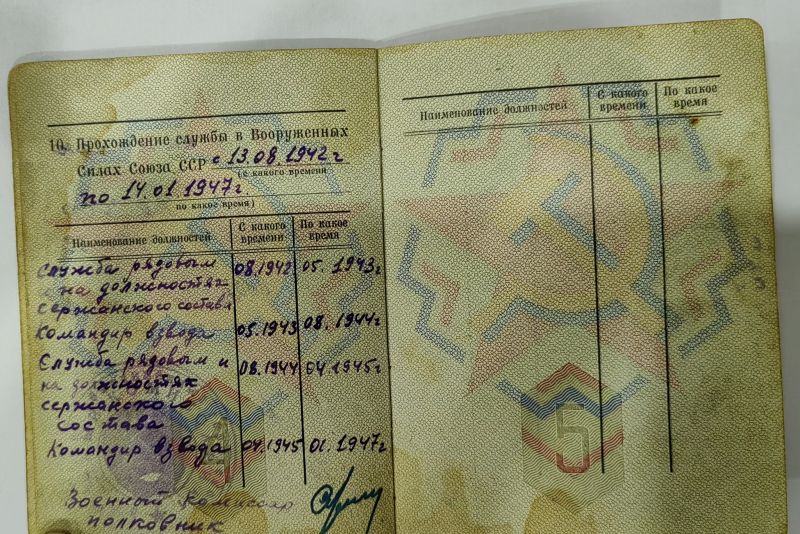 10. Прохождение службы в Вооруженных
Силах Союза ССР с 13.08.1942 г
(с какого времени
по 14.01.1947г.
по какое время)
Наименование должностей | С какого времени | По какое время
Служба рядовым 08.1942 05.1943г
на должностях
сержанского состава
Командир взвода 05.1943 08.1944г
Служба рядовым и 08.1944 04.1945г
на должностях
сержанского
состава
Командир взвода 04.1945 01.1947г
Военный комиссар
полковник
4
Наименование должностей | С какого времени | По какое время
5